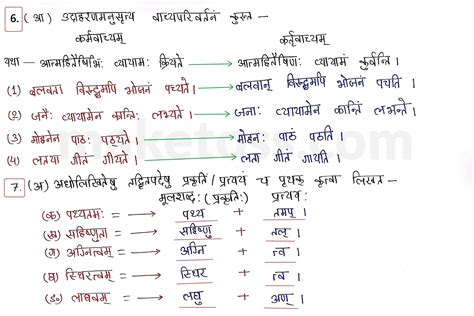 6. (आ) उदाहरणमनुसृत्य वाच्यपरिवर्तनं कुरुत –
कर्मवाच्यम् कर्तृवाच्यम्
यथा – आत्महितैषिभिः व्यायामः क्रियते → आत्महितैषिणः व्यायामं कुर्वन्ति ।
(1) बलवता विरुद्धमपि भोजनं पच्यते । → बलवान् विरुद्धमपि भोजनं पचति ।
(2) जनैः व्यायामेन कान्तिः लभ्यते । → जनाः व्यायामेन कान्तिं लभन्ते ।
(3) मोहनेन पाठः पठ्यते । → मोहनः पाठं पठति ।
(4) लतया गीतं गीयते । → लता गीतं गायति ।
7. (अ) अधोलिखितेषु तद्धितपदेषु प्रकृतिं / प्रत्ययं च पृथक् कृत्वा लिखत –
मूलशब्दः (प्रकृतिः) प्रत्ययः
(क) पथ्यतमः = → पथ्य + तमप् ।
(ख) सहिष्णुता = → सहिष्णु + तल् ।
(ग) अग्नित्वम् = → अग्नि + त्व ।
(घ) स्थिरत्वम् = → स्थिर + त्व ।
(ङ) लाघवम् = → लघु + अण् ।